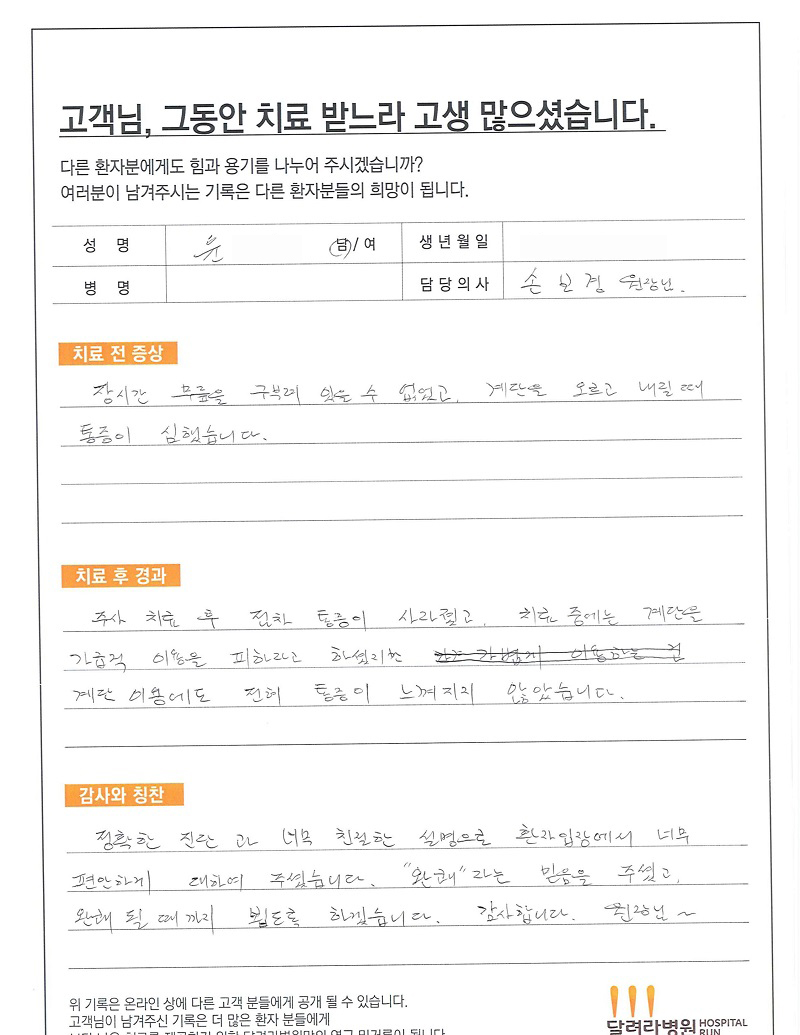 고객님, 그동안 치료 받느라 고생 많으셨습니다.
다른 환자분에게도 힘과 용기를 나누어 주시겠습니까?
여러분이 남겨주시는 기록은 다른 환자분들의 희망이 됩니다.
성 명 윤 남/여 생년월일
병 명 담당의사 손보경 원장님.
치료 전 증상
장시간 무릎을 구부려 앉을 수 없었고, 계단을 오르고 내릴 때
통증이 심했습니다.
치료 후 경과
주사 치료 후 점차 통증이 사라졌고, 치료 중에는 계단을
가급적 이용을 피하라고 하셨지만 가볍게 이용하는 건
계단 이용에도 전혀 통증이 느껴지지 않았습니다.
감사와 칭찬
정확한 진단과 너무 친절한 설명으로 환자입장에서 너무
편안하게 대하여 주셨습니다. "완쾌"라는 믿음을 주셨고,
완쾌 될 때까지 뵙도록 하겠습니다. 감사합니다. 원장님~
위 기록은 온라인 상에 다른 고객 분들에게 공개 될 수 있습니다.
고객님이 남겨주신 기록은 더 많은 환자 분들에게
달려라병원 HOSPITAL RUN